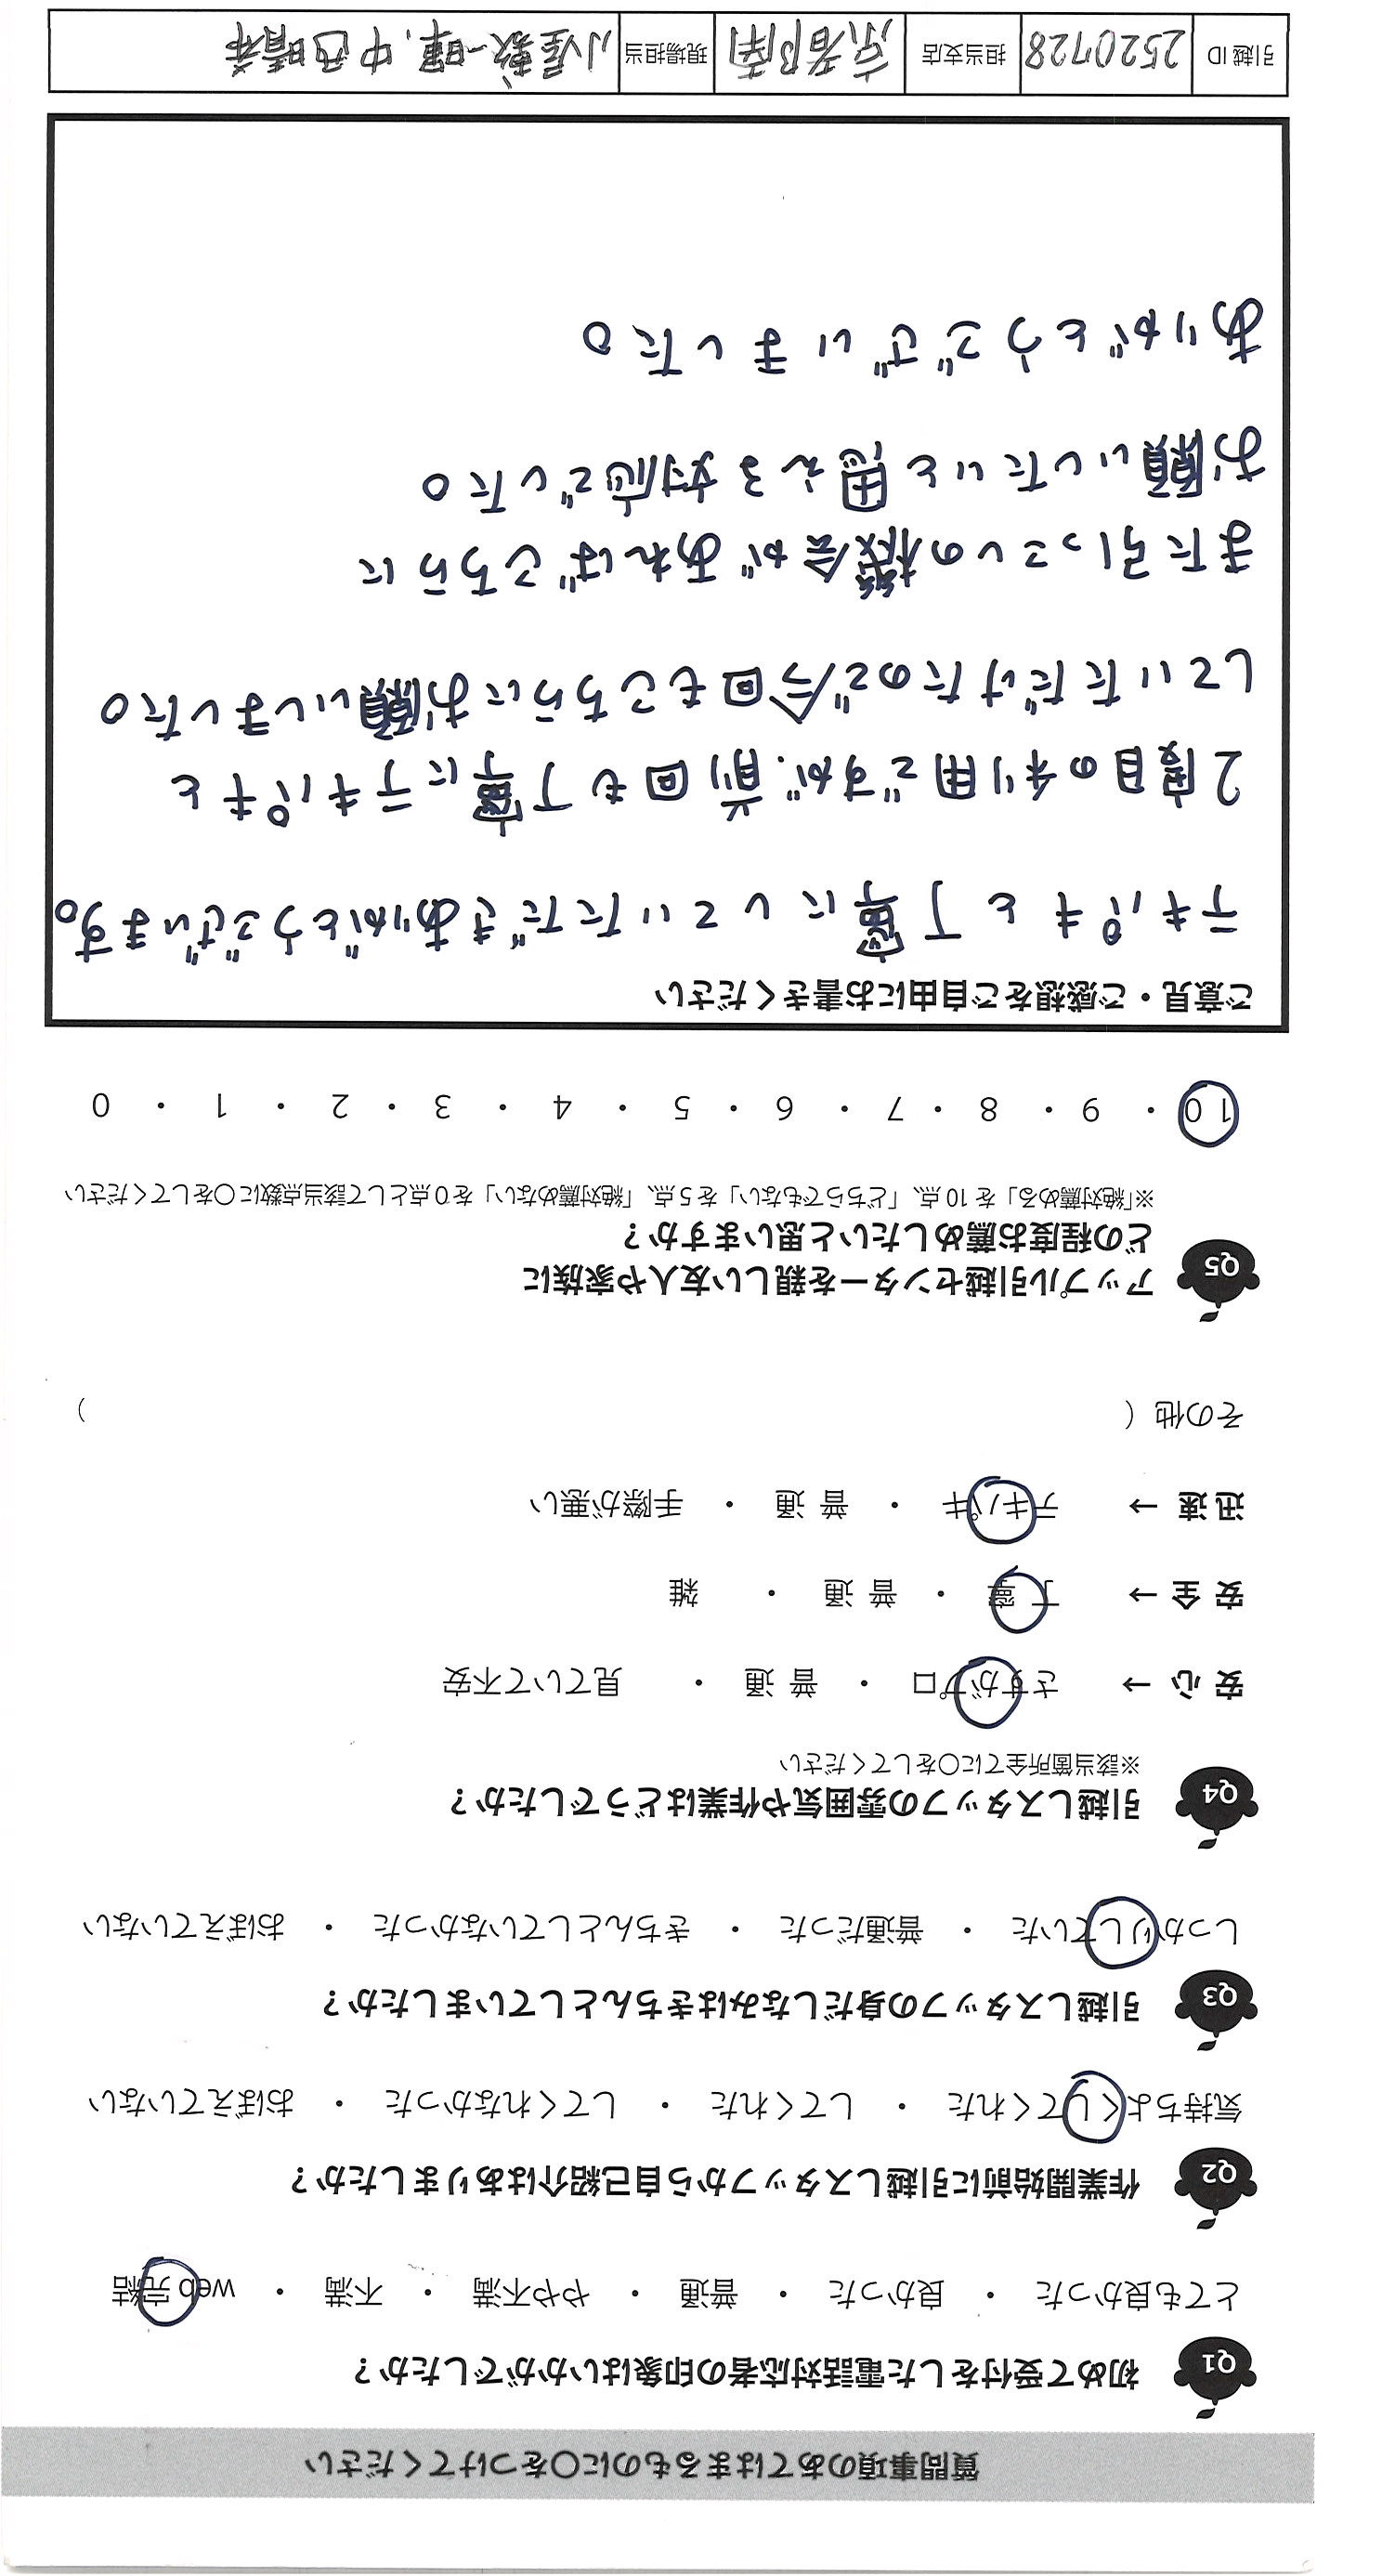 質問事項のあてはまるものに〇をつけてください
Q1 初めて受付をした電話対応者の印象はいかがでしたか？
とても良かった ・ 良かった ・ 普通 ・ やや不満 ・ 不満 ・ web 完結
Q2 作業開始前に引越しスタッフから自己紹介はありましたか？
気持ちよくしてくれた ・ してくれた ・ してくれなかった ・ おぼえていない
Q3 引越しスタッフの身だしなみはきちんとしていましたか？
しっかりしていた ・ 普通だった ・ きちんとしていなかった ・ おぼえていない
Q4 引越しスタッフの雰囲気や作業はどうでしたか？
※該当箇所全てに〇をしてください
安 心 → さすがプロ ・ 普 通 ・ 見ていて不安
安 全 → 丁 寧 ・ 普 通 ・ 雑
迅 速 → テキパキ ・ 普 通 ・ 手際が悪い
その他 ( )
Q5 アップル引越センターを親しい友人や家族に
どの程度お薦めしたいと思いますか？
※「絶対薦める」を 10 点、「どちらでもない」を 5 点、「絶対薦めない」を 0 点として該当点数に〇をしてください
10 ・ 9 ・ 8 ・ 7 ・ 6 ・ 5 ・ 4 ・ 3 ・ 2 ・ 1 ・ 0
ご意見・ご感想をご自由にお書きください
テキパキと丁寧にしていただきありがとうございます。
2度目の利用ですが、前回も丁寧にテキパキと
していただけたので今回もこちらにお願いしました。
また引っこしの機会があればこちらに
お願いしたいと思える対応でした。
ありがとうございました。
引越 ID 2520728 担当支店 京都南 現場担当 小屋敷一輝、中西晴希